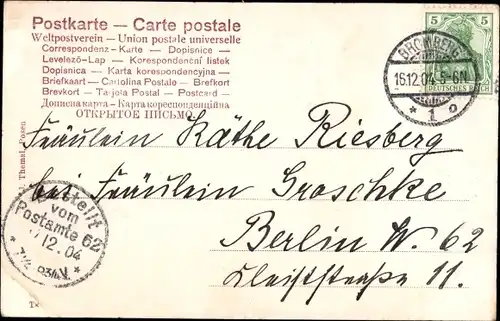 Postkarte — Carte postale
Weltpostverein — Union postale universelle
Correspondenz-Karte — Dopisnice —
Levelező-Lap — Korespondenční listek
Dopisnica — Karta korespondencyjna —
Briefkaart — Cartolina Postale — Brefkort
Brevkort — Tarjeta Postal — Postcard —
Дописна карта — Карта кореспонденційна
ОТКРЫТОЕ ПИСЬМО
5 5
DEUTSCHES REICH
BROMBERG
15.12.04. 5-6N.
* 1 o
Themal, Posen
Fräulein Käthe Riesberg
bei Fräulein Groschke
Berlin W. 62
Kleiststraße 11.
Bestellt
vom
Postamte 62
12.04